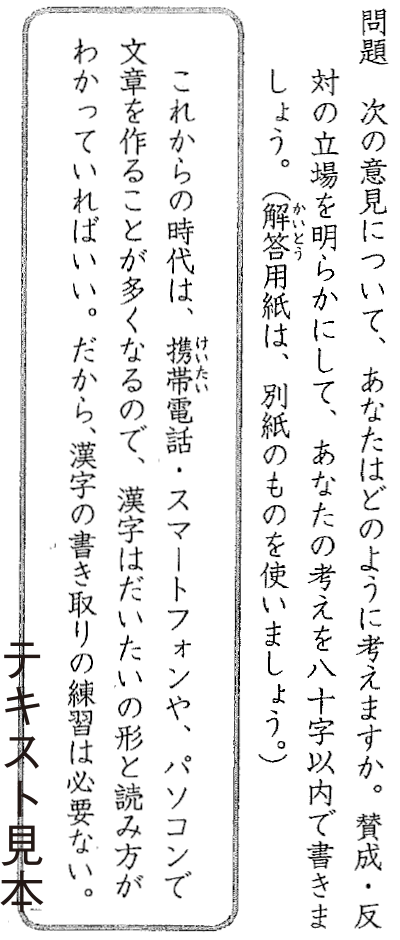 問題　次の意見について、あなたはどのように考えますか。賛成・反
対の立場を明らかにして、あなたの考えを八十字以内で書きま
しょう。（解答用紙は、別紙のものを使いましょう。）
かいとう
これからの時代は、携帯電話・スマートフォンや、パソコンで
けいたい
文章を作ることが多くなるので、漢字はだいたいの形と読み方が
わかっていればいい。だから、漢字の書き取りの練習は必要ない。
テキスト見本